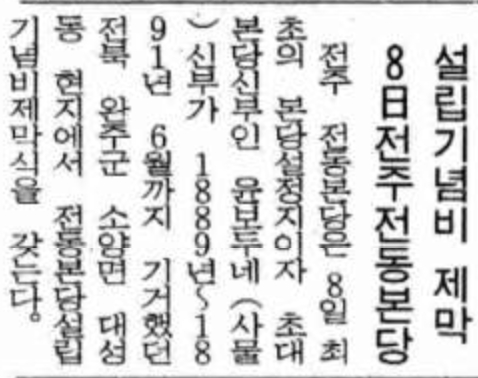 설립기념비 제막
8日전주전동본당
전주 전동본당은 8일 최
초의 본당설정지이자 초대
본당신부인 윤보두네(사물
)신부가 1889년~18
91년 6월까지 기거했던
전북 완주군 소양면 대성
동 현지에서 전동본당설립
기념비제막식을 갖는다。